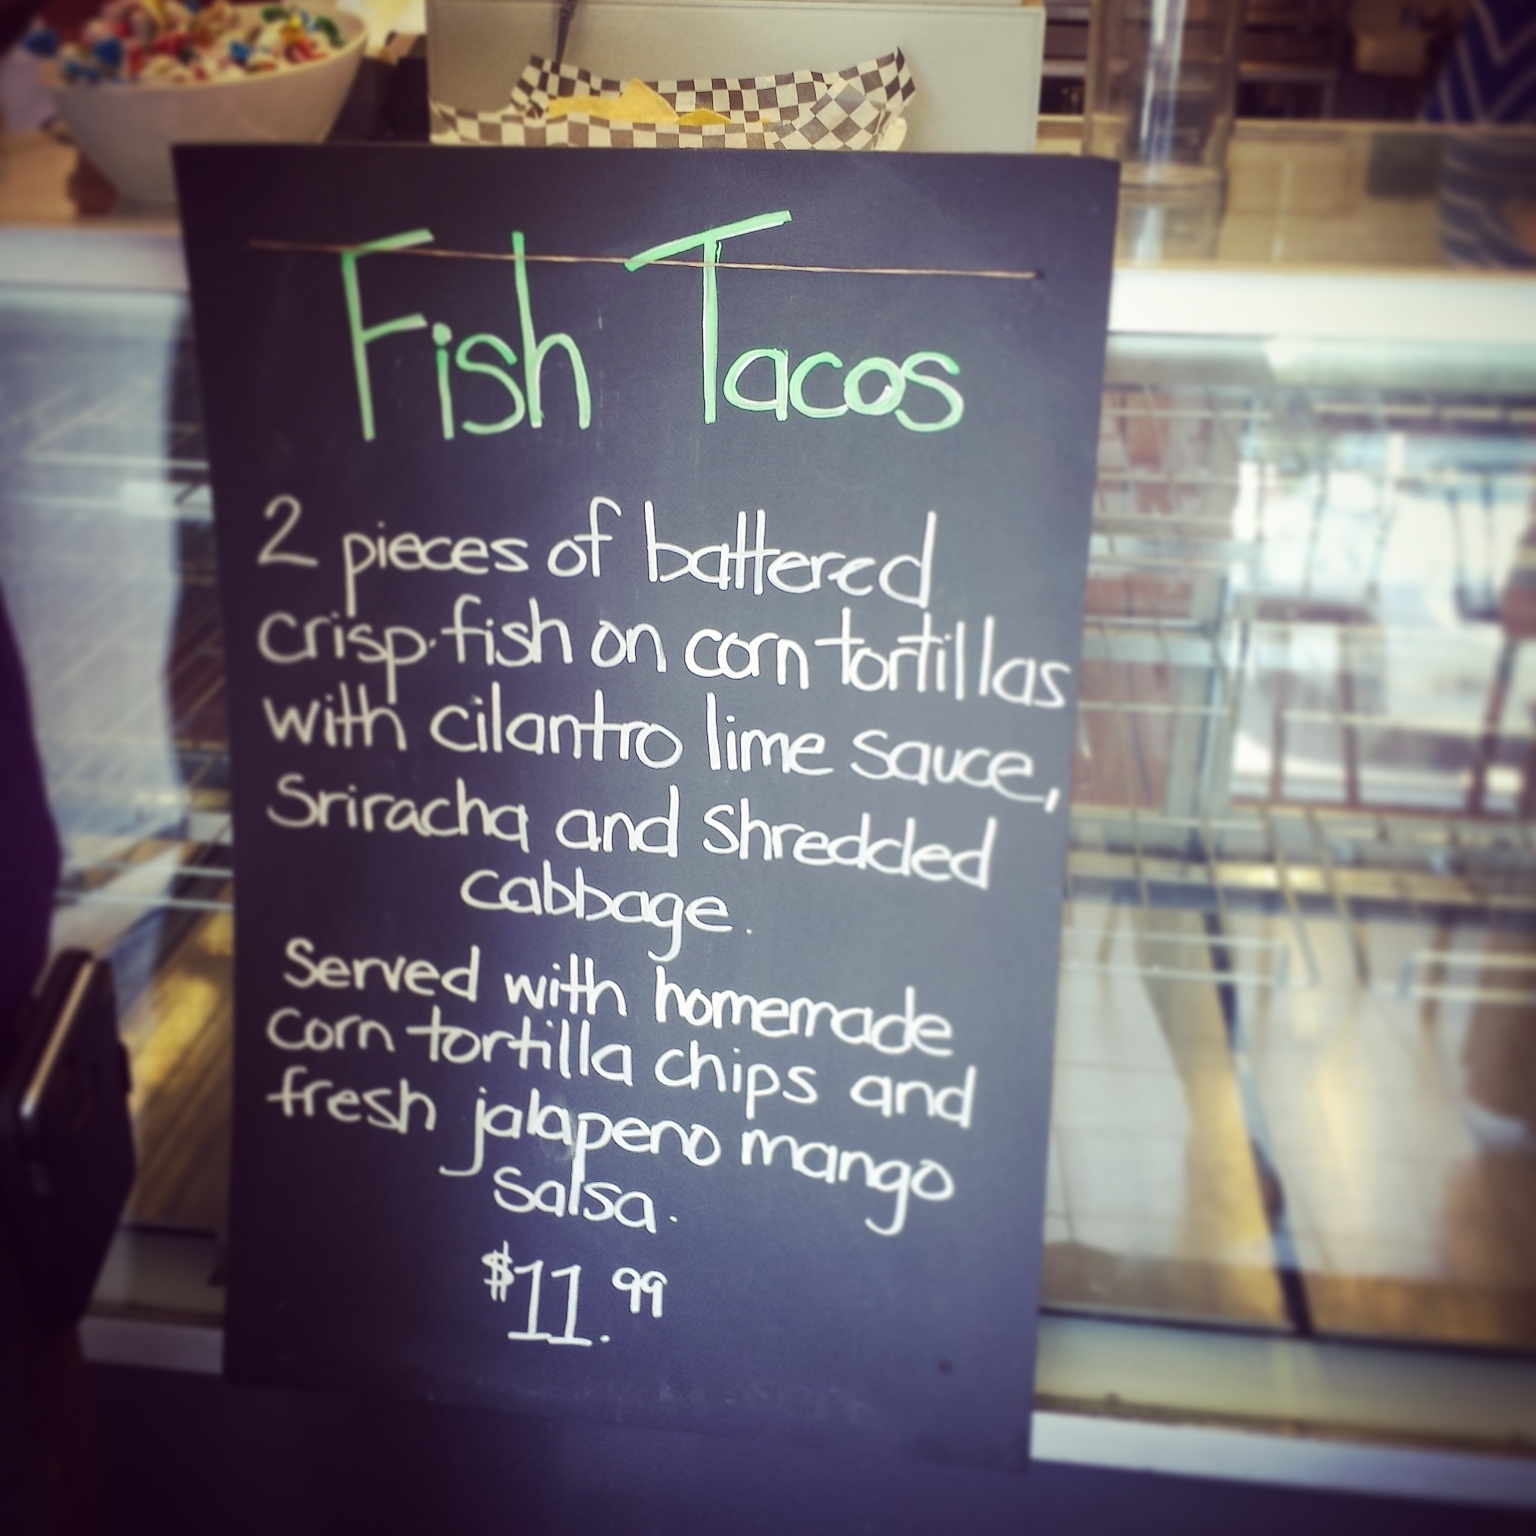 Fish Tacos
2 pieces of battered
crisp fish on corn tortillas
with cilantro lime sauce,
Sriracha and shredded
cabbage.
Served with homemade
corn tortilla chips and
fresh jalapeno mango
salsa.
$11.99